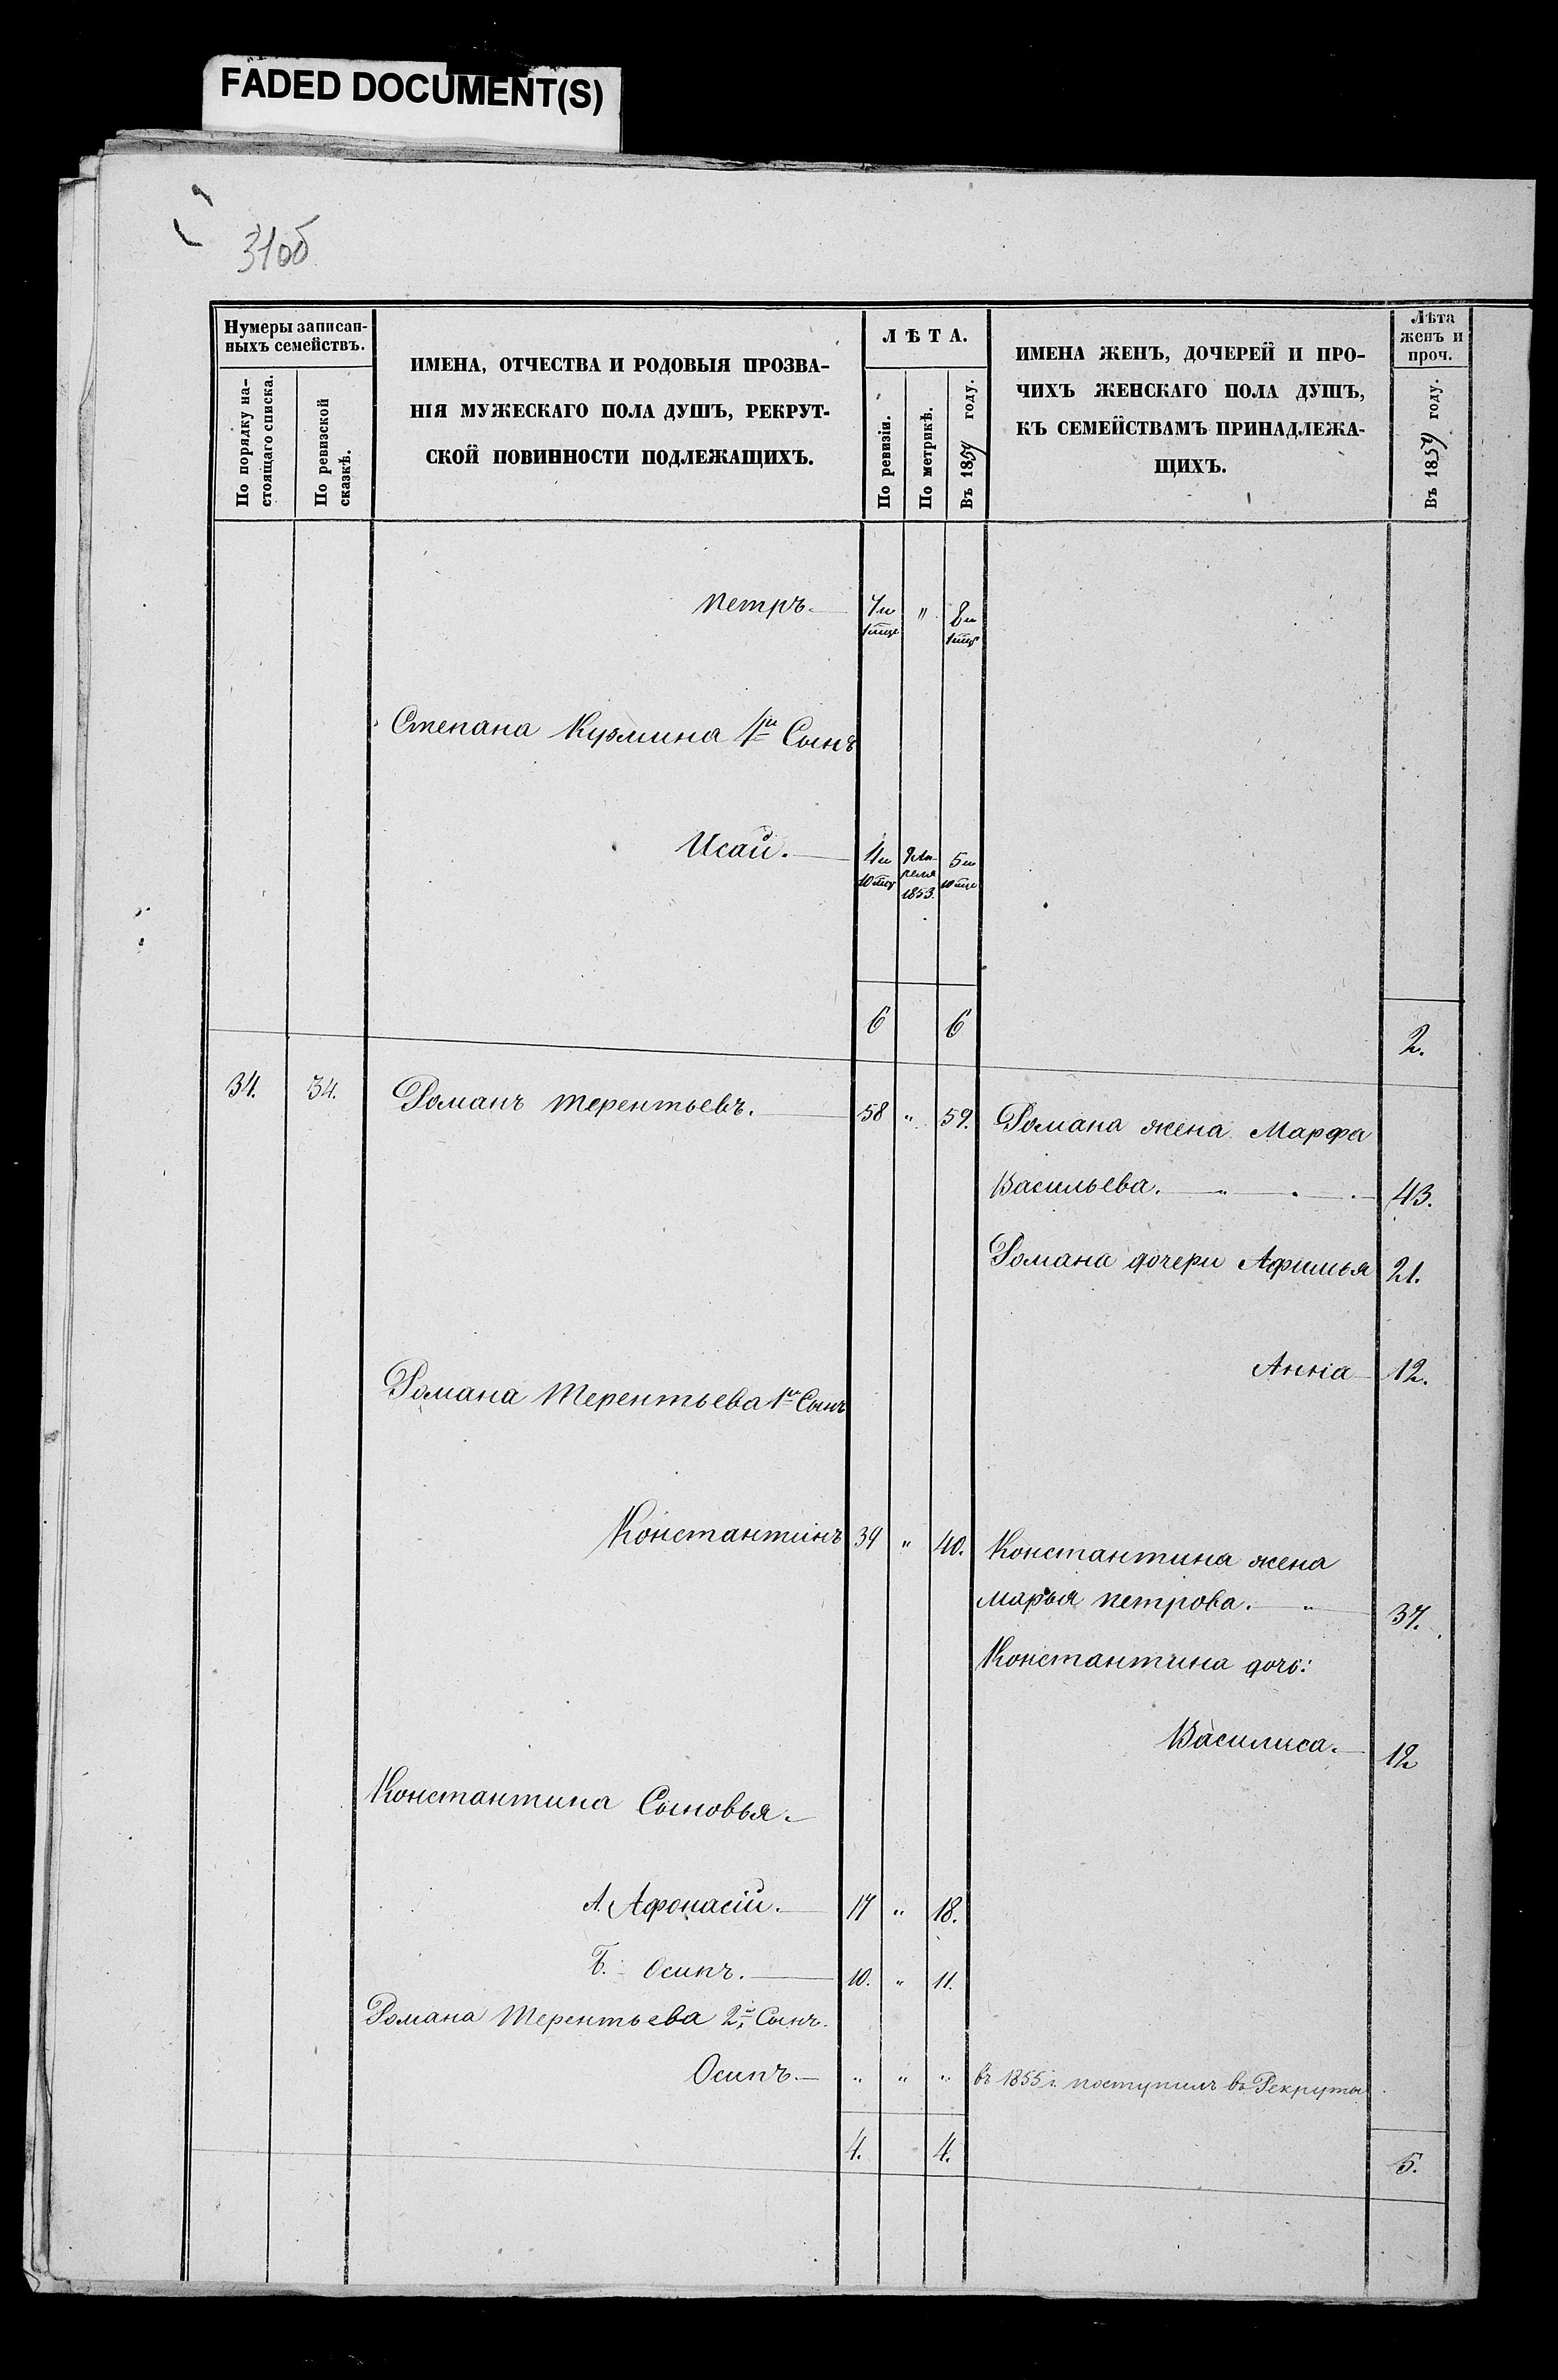 FADED DOCUMENT(S)
31об
Нумеры записан-
ныхъ семействъ.
По порядку на-
стоящаго списка.
По ревизской
сказкѣ.
ИМЕНА, ОТЧЕСТВА И РОДОВЫЯ ПРОЗВА-
НІЯ МУЖЕСКАГО ПОЛА ДУШЪ, РЕКРУТ-
СКОЙ ПОВИННОСТИ ПОДЛЕЖАЩИХЪ.
ЛѢТА.
По ревизіи.
По метрикѣ.
Въ 1859 году.
ИМЕНА ЖЕНЪ, ДОЧЕРЕЙ И ПРО-
ЧИХЪ ЖЕНСКАГО ПОЛА ДУШЪ,
КЪ СЕМЕЙСТВАМЪ ПРИНАДЛЕЖА-
ЩИХЪ.
Лѣта
женъ и
проч.
Въ 1859 году.
петръ. "
Степана Кузмина 4й Сынъ
Исай.
1853.
6 6 2.
34. 34. Романъ терентьевъ. 58 " 59. Романа жена Марфа
Васильева. " 43.
Романа дочери Афимья 21.
Анна 12.
Романа Терентьева 1й Сынъ
Константинъ 39 " 40. Константина жена
марья петрова. " 37.
Константина дочь:
Василиса. 12
Константина Сыновья.
А. Афонасій. 17 " 18.
Б. Осипъ. 10. " 11.
Романа Терентьева 2й Сынъ.
Осипъ. " " " въ 1855 г. поступилъ въ Рекруты
4. 4. 5.